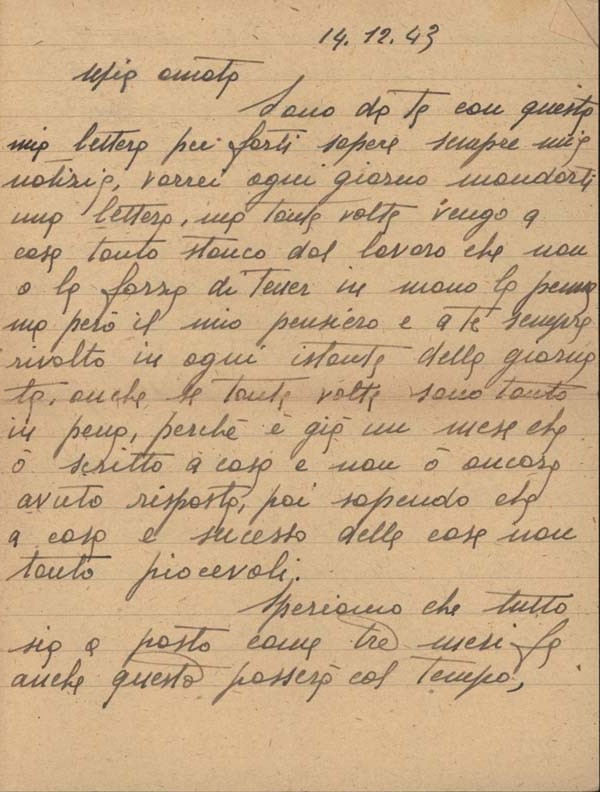 14. 12. 43
Mia amata
Sono da te con questa
mia lettera per farti sapere sempre mie
notizie, vorrei ogni giorno mandarti
una lettera, ma tante volte vengo a
casa tanto stanco dal lavoro che non
o la forza di tener in mano la penna
ma però il mio pensiero e a te sempre
rivolto in ogni istante della giorna
ta, anche se tante volte sono tanto
in pena, perchè è già un mese che
ò scritto a casa e non ò ancora
avuto risposta, poi sapendo che
a casa e sucesso delle cose non
tanto piacevoli.
Speriamo che tutto
sia a posto come tre mesi fa
anche questo passerà col tempo,